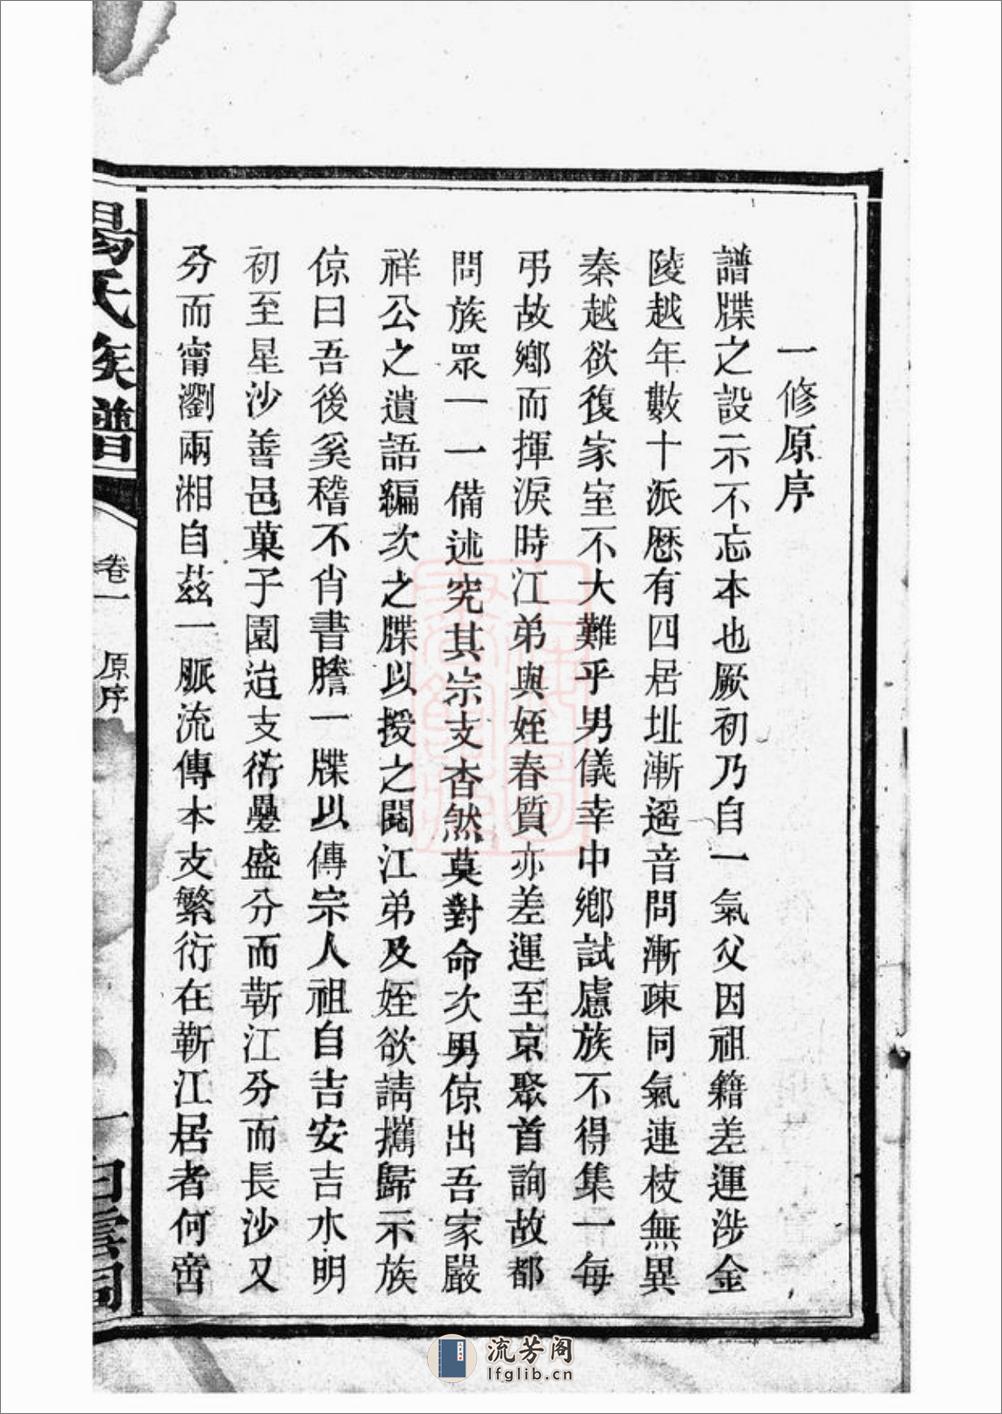 一修原序
譜牒之設示不忘本也厥初乃自一氣父因祖籍差運涉金
陵越年數十派歷有四居址漸遙音問漸疎同氣連枝無異
秦越欲復家室不大難乎男儀幸中鄉試慮族不得集一每
弔故鄉而揮淚時江弟與姪春質亦差運至京聚首詢故都
問族眾一一備述究其宗支杳然莫對命次男倞出吾家嚴
祥公之遺語編次之牒以授之閱江弟及姪欲請攜歸示族
倞曰吾後奚稽不肖書謄一牒以傳宗人祖自吉安吉水明
初至星沙善邑菓子園迨支衍疊盛分而蘄江分而長沙又
分而甯瀏兩湘自茲一脈流傳本支繁衍在蘄江居者何啻
楊氏族譜
卷一
原序
一
白雲洞
流芳阁
lfglib.cn